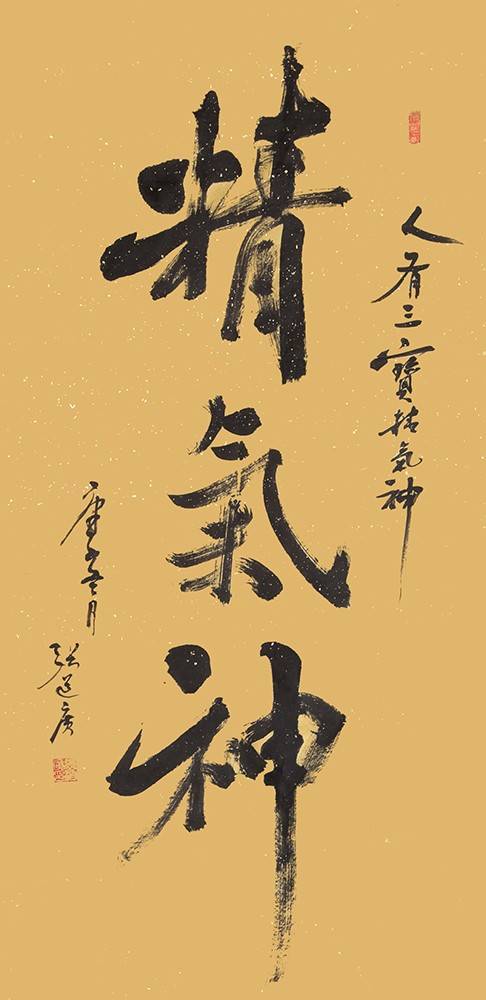 人有三寶精氣神
精氣神
庚子冬月
張道廣